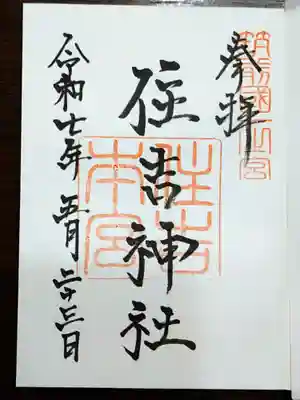 奉拝
筑前國一之宮
住吉神社
住吉本宮
令和七年五月二十三日